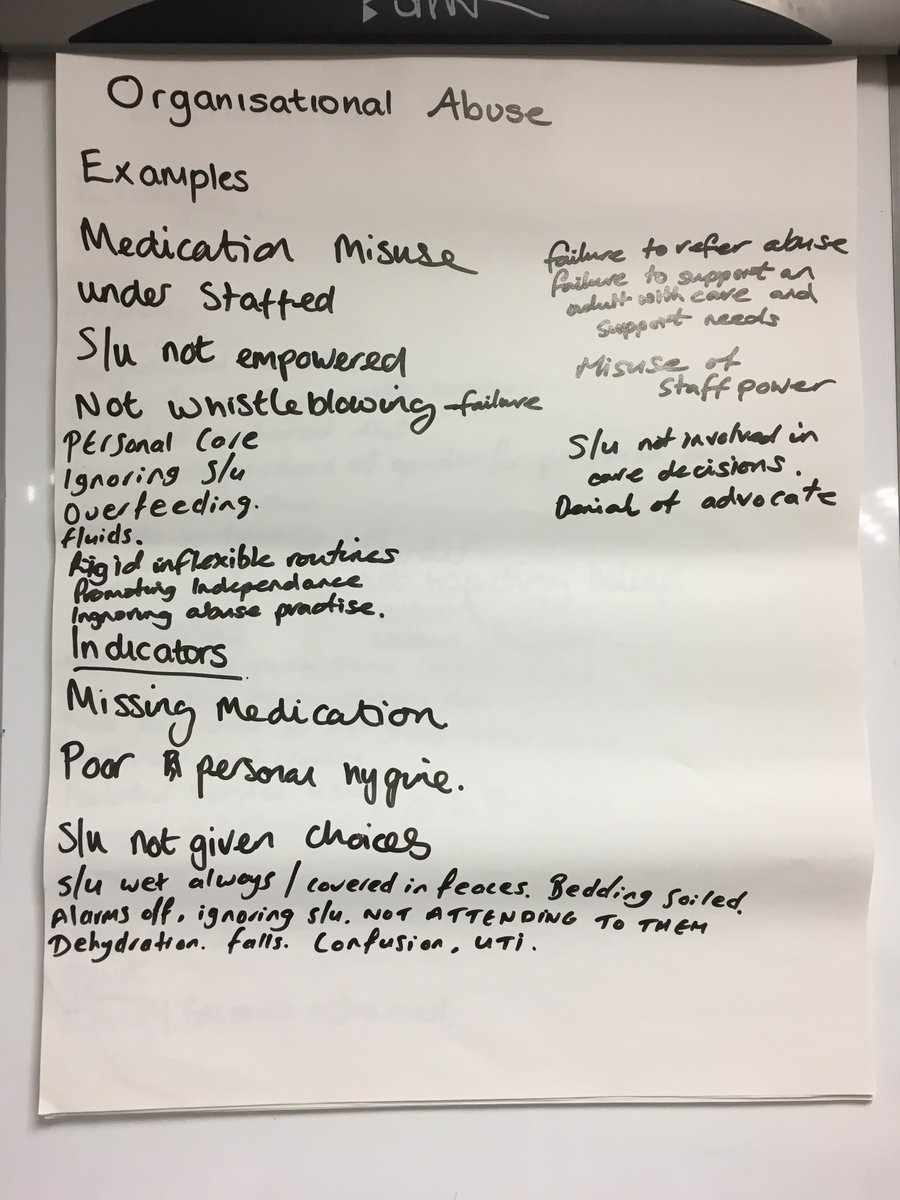 Organisational Abuse
Examples
Medication Misuse
under Staffed
S/u not empowered
Not whistleblowing - failure
Personal Care
Ignoring S/u
Overfeeding.
fluids.
Rigid inflexible routines
Promoting Independance
Ingnoring abuse practise.
failure to refer abuse
failure to support an
adult with care and
support needs
Misuse of
Staff power
S/u not involved in
care decisions.
Denial of advocate
Indicators
Missing Medication
Poor personal hygine.
S/u not given choices
S/u wet always / covered in feaces. Bedding Soiled.
Alarms off, ignoring s/u. NOT ATTENDING TO THEM
Dehydration. falls. Confusion, UTI.